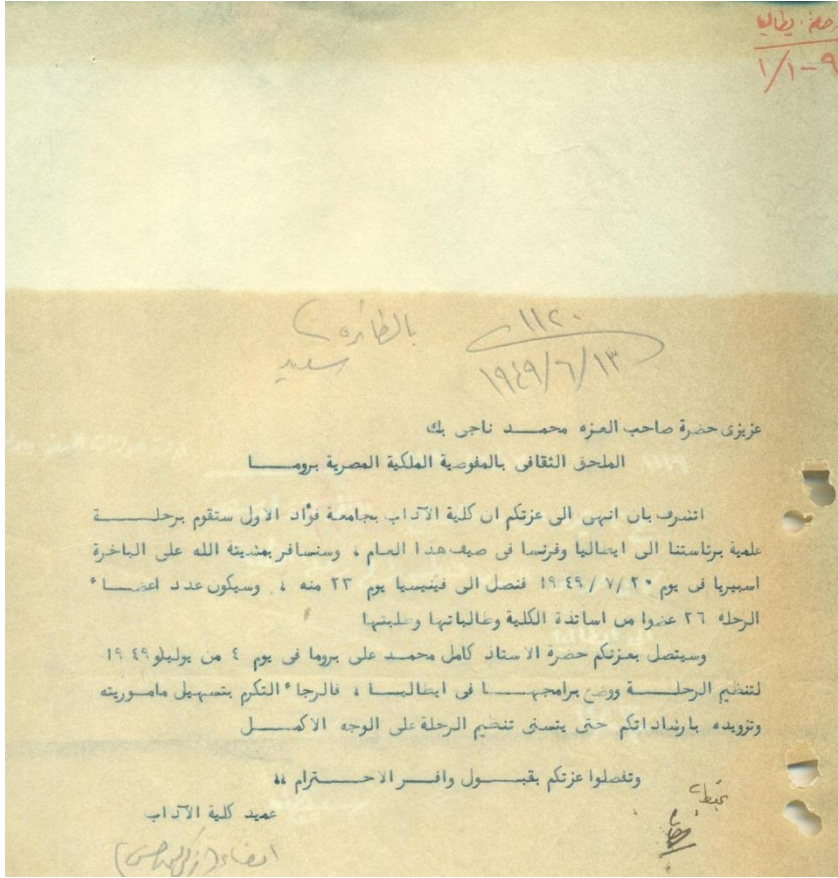 رحلة ايطاليا
١/١-٩
١١٢٠
١٩٤٩/٦/١٣
بالطائرة
سعيد
عزيزى حضرة صاحب العزه محمــد ناجى بك
الملحق الثقافى بالمفوضية الملكية المصرية برومـــا
اتشرف بان انهى الى عزتكم ان كلية الآداب بجامعة فؤاد الاول ستقوم برحلـــة
علمية برئاستنا الى ايطاليا وفرنسا فى صيف هذا العـام ، وسنسافر بمشيئة الله على الباخرة
اسبيريا فى يوم ٢٠ / ٧ / ١٩٤٩ فنصل الى فينيسيا يوم ٢٣ منه ، وسيكون عدد اعضـاء
الرحله ٢٦ عضوا من اساتذة الكلية وطالباتها وطلبتها
وسيتصل بعزتكم حضرة الاستاذ كامل محمـد على بروما فى يوم ٤ من يوليلو ١٩٤٩
لتنظيم الرحلــة ووضع برامجهــا فى ايطاليــا ، فالرجاء التكرم بتسهيل ماموريته
وتزويده بارشاداتكم حتى يتسنى تنظيم الرحلة على الوجه الاكمــل
وتفضلوا عزتكم بقبــول وافــر الاحــترام ،،
عميد كلية الآداب
امضاء (زكى محمد حسن)